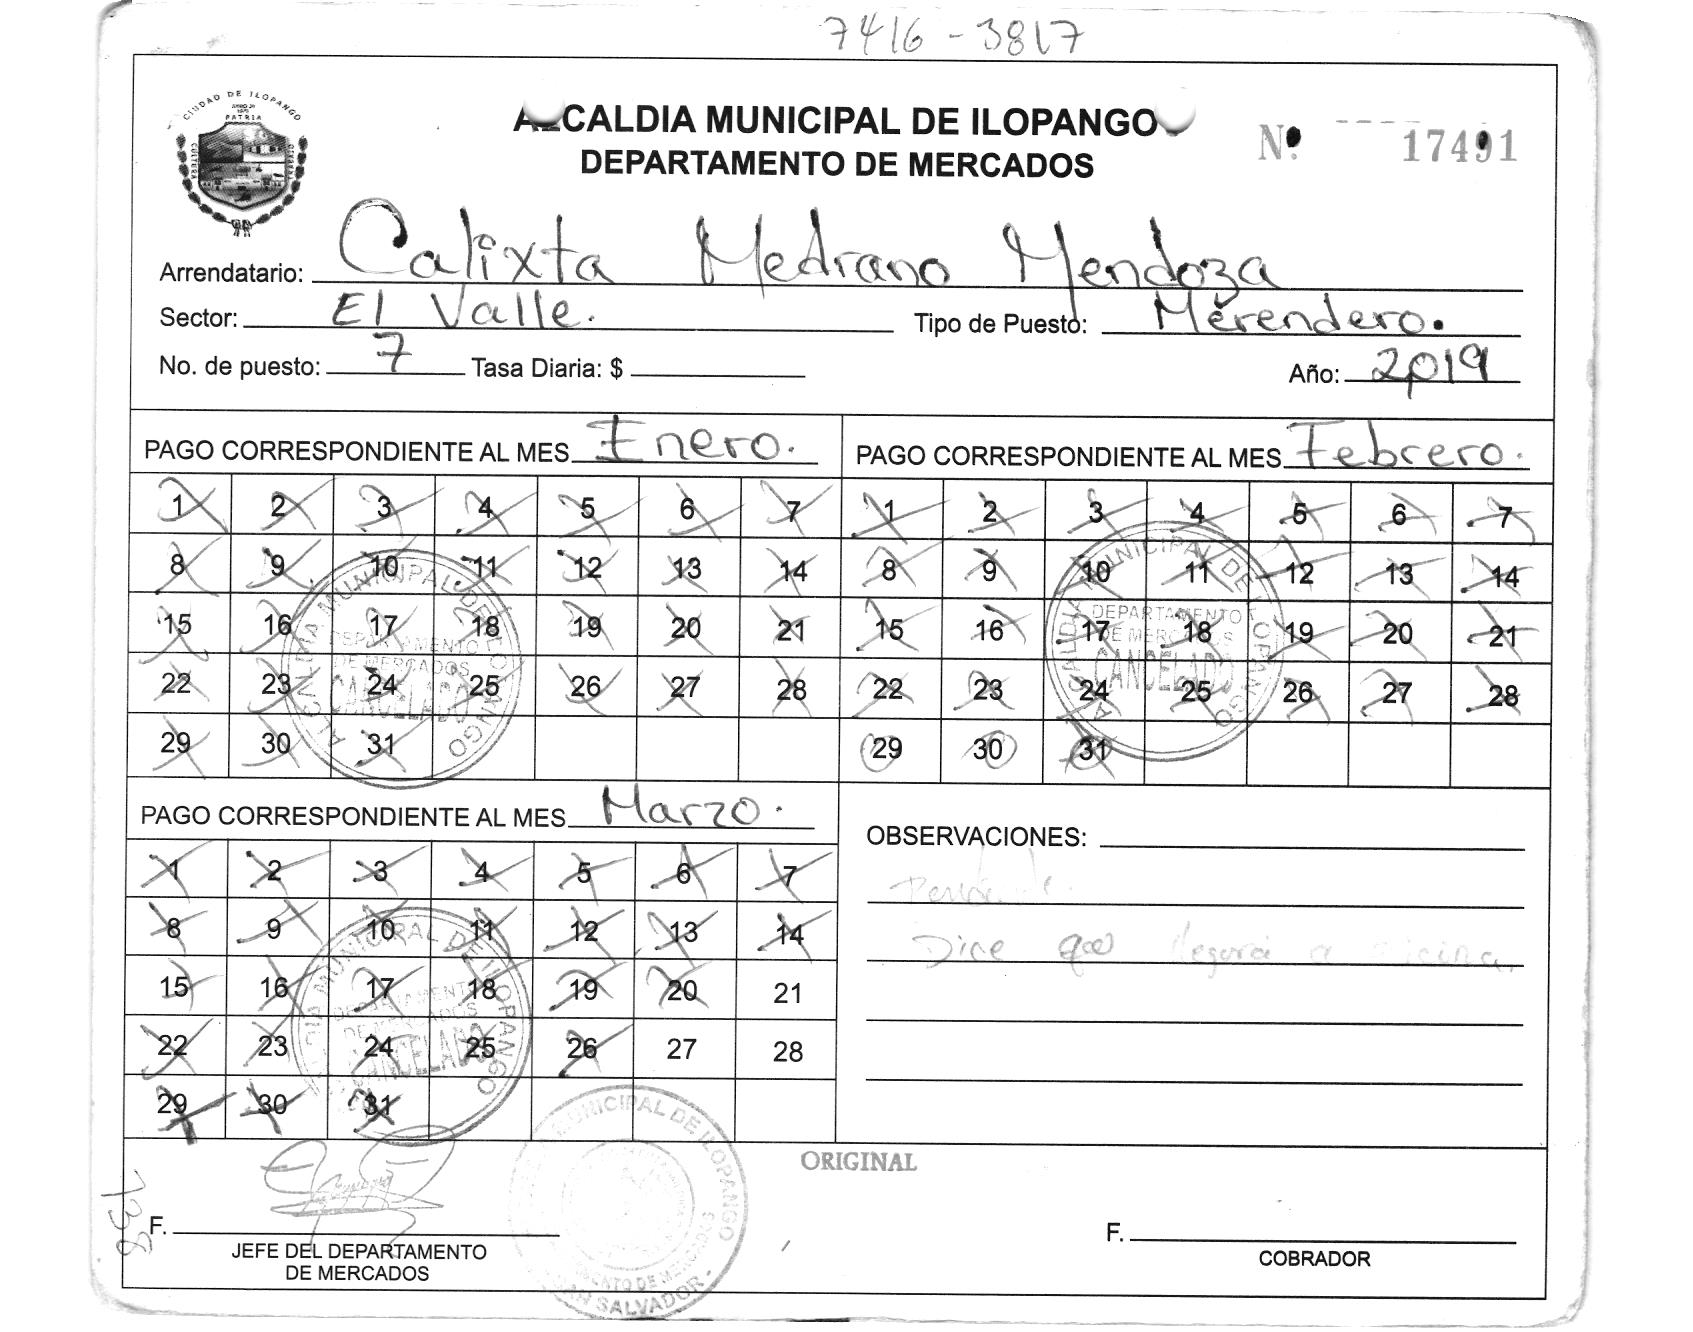 7416-3817
CIUDAD DE ILOPANGO
PATRIA
CULTURA
ALCALDIA MUNICIPAL DE ILOPANGO
DEPARTAMENTO DE MERCADOS
Nº. 17491
Arrendatario: Calixta Medrano Mendoza
Sector: El Valle. Tipo de Puesto: Merendero.
No. de puesto: 7 Tasa Diaria: $ Año: 2019
PAGO CORRESPONDIENTE AL MES Enero.
1 2 3 4 5 6 7
8 9 10 11 12 13 14
15 16 17 18 19 20 21
22 23 24 25 26 27 28
29 30 31
ALCALDIA MUNICIPAL DE ILOPANGO
DEPARTAMENTO
DE MERCADOS
CANCELADO
PAGO CORRESPONDIENTE AL MES Febrero.
1 2 3 4 5 6 7
8 9 10 11 12 13 14
15 16 17 18 19 20 21
22 23 24 25 26 27 28
29 30 31
ALCALDIA MUNICIPAL DE ILOPANGO
DEPARTAMENTO
DE MERCADOS
CANCELADO
PAGO CORRESPONDIENTE AL MES Marzo.
1 2 3 4 5 6 7
8 9 10 11 12 13 14
15 16 17 18 19 20 21
22 23 24 25 26 27 28
29 30 31
MUNICIPAL DE ILOPANGO
DEPARTAMENTO
DE MERCADOS
CANCELADO
OBSERVACIONES:
Dice que llegará a
ORIGINAL
738
F.
JEFE DEL DEPARTAMENTO
DE MERCADOS
MUNICIPAL DE ILOPANGO
DE MERCADOS
SAN SALVADOR
F.
COBRADOR